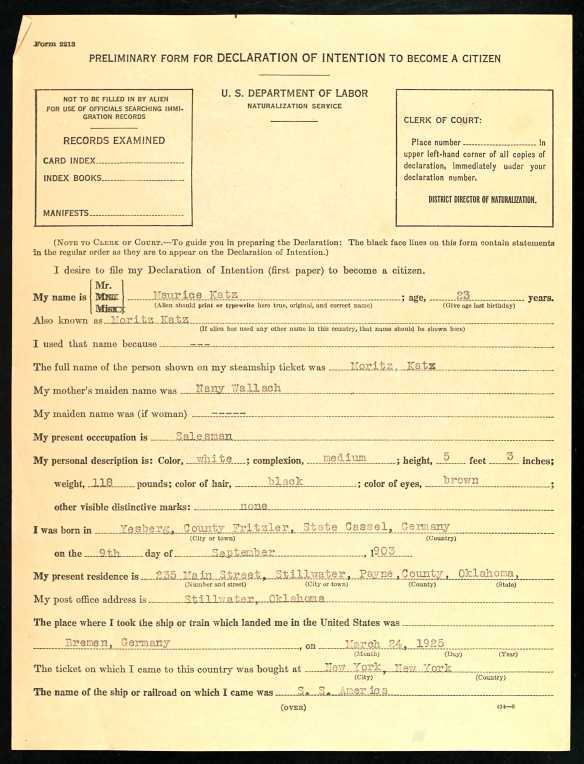 Form 2213
PRELIMINARY FORM FOR DECLARATION OF INTENTION TO BECOME A CITIZEN
U. S. DEPARTMENT OF LABOR
NATURALIZATION SERVICE
NOT TO BE FILLED IN BY ALIEN
FOR USE OF OFFICIALS SEARCHING IMMI-
GRATION RECORDS
RECORDS EXAMINED
CARD INDEX
INDEX BOOKS
MANIFESTS
CLERK OF COURT:
Place number in
upper left-hand corner of all copies of
declaration, immediately under your
declaration number.
DISTRICT DIRECTOR OF NATURALIZATION.
(NOTE TO CLERK OF COURT.—To guide you in preparing the Declaration: The black face lines on this form contain statements
in the regular order as they are to appear on the Declaration of Intention.)
I desire to file my Declaration of Intention (first paper) to become a citizen.
Mr.
My name is Mrs. Maurice Katz ; age, 23 years.
Miss (Alien should print or typewrite here true, original, and correct name) (Give age last birthday)
Also known as Moritz Katz
(If alien has used any other name in this country, that name should be shown here)
I used that name because ---
The full name of the person shown on my steamship ticket was Moritz. Katx
My mother's maiden name was Nany Wallach
My maiden name was (if woman) -----
My present occcupation is Salesman
My personal description is: Color, white ; complexion, medium ; height, 5 feet 3 inches;
weight, 118 pounds; color of hair, black ; color of eyes, brown ;
other visible distinctive marks: none
I was born in Yesberg, County Fritzler, State Cassel, Germany
(City or town) (Country)
on the 9th day of September , 1903
My present residence is 235 Main Street, Stillwater, Payne,County, Oklahoma,
(Number and street) (City or town) (County) (State)
My post office address is Stillwater, Oklahoma
The place where I took the ship or train which landed me in the United States was
Bremen, Germany , on March 24, 1925
(Month) (Day) (Year)
The ticket on which I came to this country was bought at New York, New York
(City) (Country)
The name of the ship or railroad on which I came was S. S. America
(OVER)